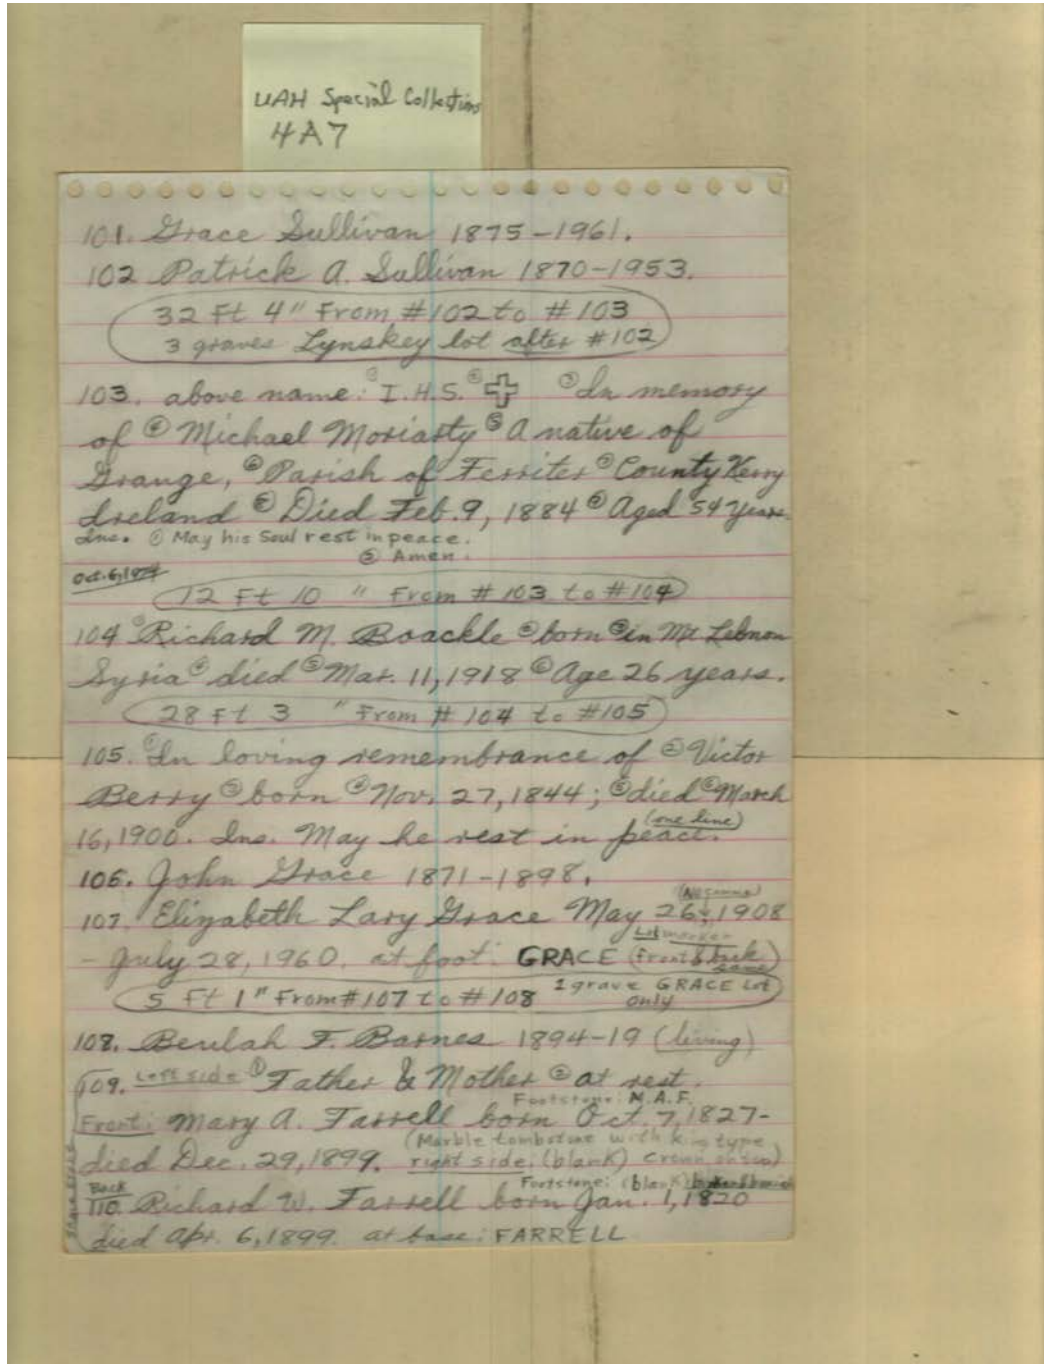 UAH Special Collections
4A7
101. Grace Sullivan 1875-1961.
102 Patrick A. Sullivan 1870-1953.
32 Ft 4" From #102 to #103
3 graves Lynskey lot after #102
103. above name: ① I.H.S. ② ③ In memory
of ④ Michael Moriarty ⑤ A native of
Grange, ⑥ Parish of Ferriter ⑦ County Kerry
Ireland ⑧ Died Feb. 9, 1884 ⑨ Aged 54 years.
Ins. ① May his Soul rest in peace.
② Amen.
Oct. 6, 1974
12 Ft 10 " From #103 to #104
104 ① Richard M. Boackle ② born ③ in Mt Lebnon
Syria ④ died ⑤ Mar. 11, 1918 ⑥ Age 26 years.
28 Ft 3 " From # 104 to #105
105. ① In loving remembrance of ② Victor
Berry ③ born ④ Nov. 27, 1844; ⑤ died ⑥ March
16, 1900. Ins. May he rest in peace. (one line)
106. John Grace 1871-1898.
107. Elizabeth Lary Grace May 26, 1908 (No comma)
- July 28, 1960. at foot: GRACE Lot marker (Front & back same)
5 Ft 1" From #107 to #108 1 grave GRACE Lot only
108. Beulah F. Barnes 1894-19 (living)
109. Left side ① Father & Mother ② at rest.
Footstone: M.A.F.
Front: Mary A. Farrell born Oct. 7, 1827-
died Dec. 29, 1899. (Marble tombstone with type
right side: (blank) crown on top)
Footstone: (blank)
Back
110. Richard W. Farrell born Jan. 1, 1820
died Apr. 6, 1899. at base: FARRELL